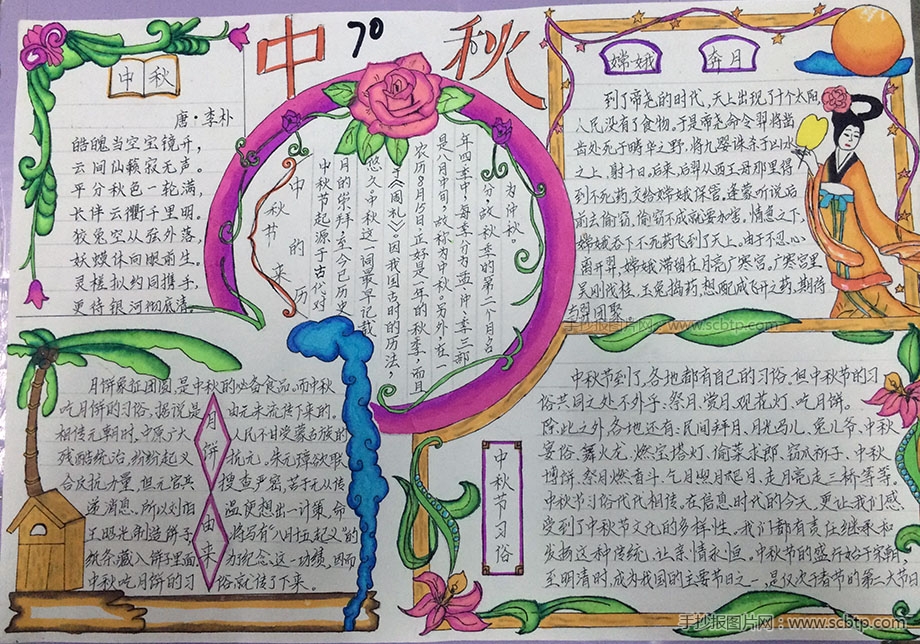 中 秋
70
中 秋
唐·李朴
皓魄当空宝镜升，
云间仙籁寂无声。
平分秋色一轮满，
长伴云衢千里明。
狡兔空从弦外落，
妖蟆休向眼前生。
灵槎拟约同携手，
更待银河彻底清。
中秋节的来历
中秋节起源于古代对
月的崇拜，至今已历史
悠久。中秋这一词最早记载
于《周礼》，因我国古时的历法，
农历8月15日正好是一年的秋季，而且
是八月中旬，故称为中秋。另外，在一
年四季中，每季分为孟、仲、季三部
分，故称秋季的第二个月名
为仲秋。
嫦娥 奔月
到了帝尧的时代，天上出现了十个太阳，
人民没有了食物。于是帝尧命令羿将凿
齿处死于畴华之野，将九婴诛杀于凶水
之上，射十日。后来，后羿从西王母那里得
到不死药，交给嫦娥保管。逢蒙听说后
前去偷窃，偷窃不成就要加害，情急之下，
嫦娥吞下不死药飞到了天上。由于不忍心
离开羿，嫦娥滞留在月亮广寒宫。广寒宫里
吴刚伐桂，玉兔捣药，想配成飞升之药，期待
与羿团聚
手抄报图片网 www.scbtp.com
月饼由来
月饼象征团圆，是中秋的必备食品。而中秋
吃月饼的习俗，据说是由元末流传下来的。
相传元朝时，中原广大人民不甘受蒙古族的
残酷统治，纷纷起义抗元。朱元璋欲联
合反抗力量，但元官兵搜查严密，苦于无从传
递消息。所以刘伯温便想出一计策，命
王昭光制造饼子，将写有“八月十五起义”的
纸条藏入饼子里面。为纪念这一功绩，因而
中秋吃月饼的习俗就传了下来。
中秋节习俗
中秋节到了，各地都有自己的习俗。但中秋节的习
俗共同之处不外乎：祭月、赏月、观花灯、吃月饼。
除此之外各地还有：民间拜月、月光马儿、兔儿爷、中秋
宴俗、舞火龙、燃宝塔灯、偷菜求郎、窃瓜祈子、中秋
博饼、祭月燃香斗、乞月照月爬月、走月亮走三桥等等。
中秋节习俗代代相传。在信息时代的今天，更让我们感
受到了中秋节文化的多样性。我们都有责任继承和
发扬这种传统，让亲情永恒。中秋节的盛行始于宋朝，
至明清时，成为我国的主要节日之一，是仅次于春节的第二大节日
手抄报图片网：www.scbtp.com